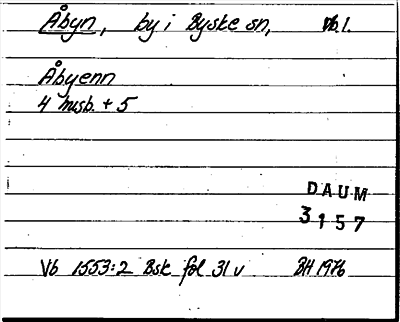 Åbyn, by i Byske sn, Vb.l.
Åbyenn
4 husb. + 5
DAUM
3157
Vb 1553:2 Bsk fol 31 v BH 1976